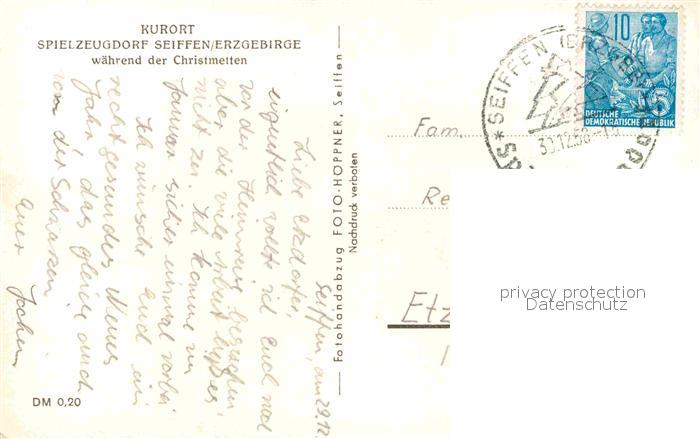 KURORT
SPIELZEUGDORF SEIFFEN/ERZGEBIRGE
während der Christmetten
Seiffen, am 29.12.
Liebe Etzdorfer,
eigentlich wollte ich Euch mal
vor der Heimreise besuchen,
aber die viele Arbeit ließ es
nicht zu. Ich komme im
Januar sicher einmal vorbei
Ich wünsche Euch ein
recht gesundes Neues
Jahr das gleiche auch
von der
Euer Jochen
DM 0,20
Fotohandabzug FOTO-HÖPPNER, Seiffen
Nachdruck verboten
10
DEUTSCHE
DEMOKRATISCHE REPUBLIK
* SEIFFEN (ERZGEB)
30.12.58
Fam
Re
Etz
privacy protection
Datenschutz